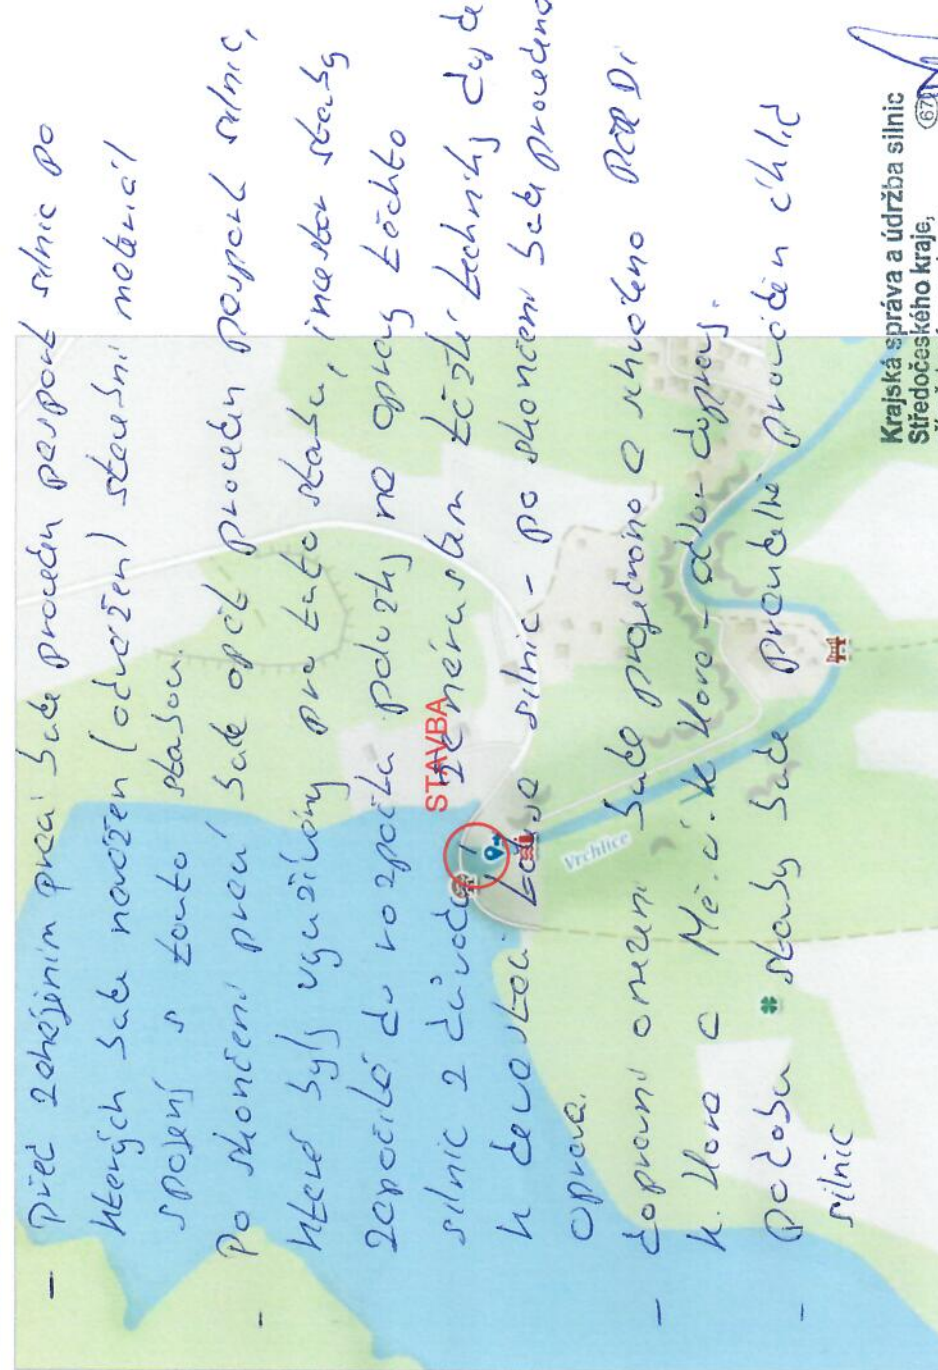 - Před zahájením prací bude proveden pasport silnic po
kterých bude navážen (odvážen) stavební materiál
spojený s touto stavbou.
- Po skončení prací bude opět proveden pasport silnic,
které byly využívány pro tuto stavbu, investor stavby
započítá do rozpočtu položky na opravy těchto
silnic z důvodu, že nárůstem těžké techniky dojde
k devastaci tohoto silnic - po skončení bude provedena
oprava.
- dopravní omezení bude projednáno a schváleno PČR DI
K. Hora a MěÚ K. Hora - odbor dopravy.
- Po dobu stavby bude pravidelně prováděn úklid
silnic
STAVBA
Vrchlice
Krajská správa a údržba silnic
Středočeského kraje,
67